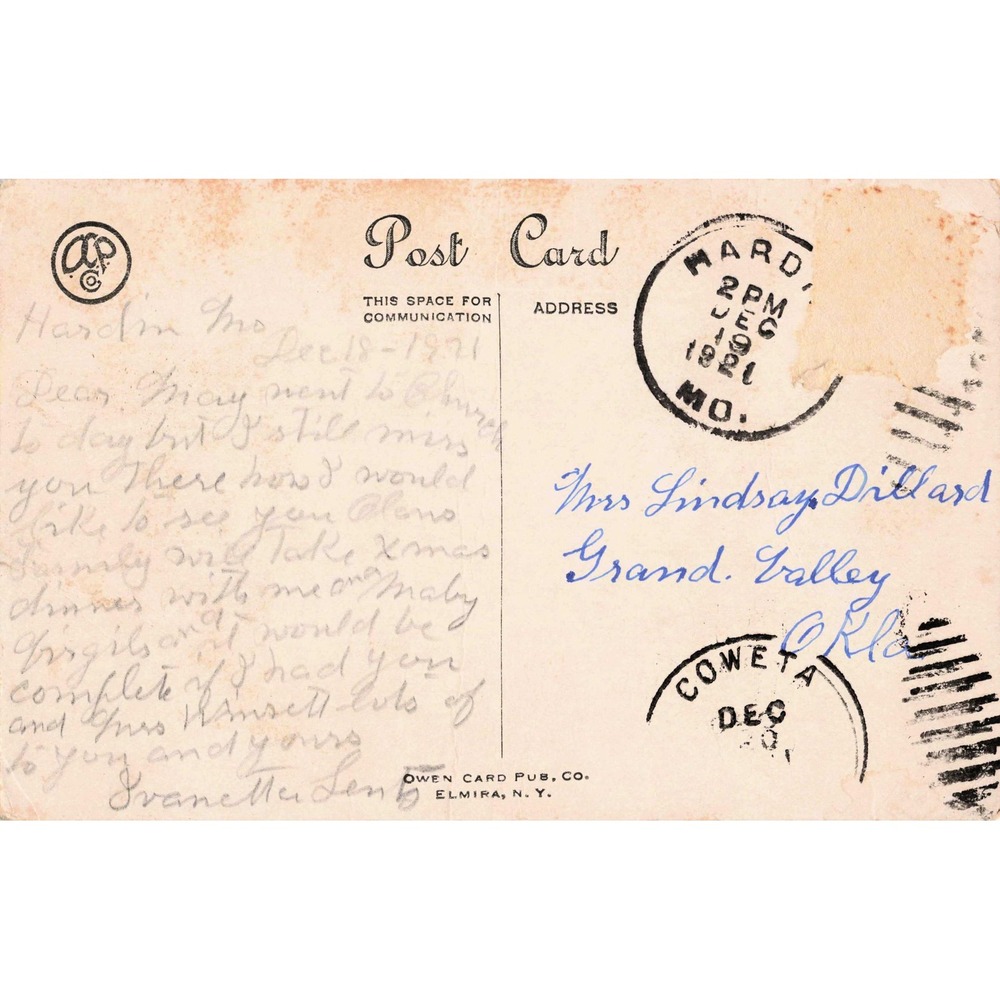 Post Card
THIS SPACE FOR
COMMUNICATION
ADDRESS
Hardin Mo
Dec 18-1921
Dear May went to Church
to day but I still miss
you There how I would
like to see you
Family will Take Xmas
dinner with me and Maby
and it would be
complete if I had you
and Mrs lots of
to you and yours
Ivanetta Lentz
HARD
2 PM
DEC
19
1921
MO.
Mrs Lindsay Dillard
Grand. Valley
Okla
COWETA
DEC
OWEN CARD PUB. CO.
ELMIRA, N. Y.